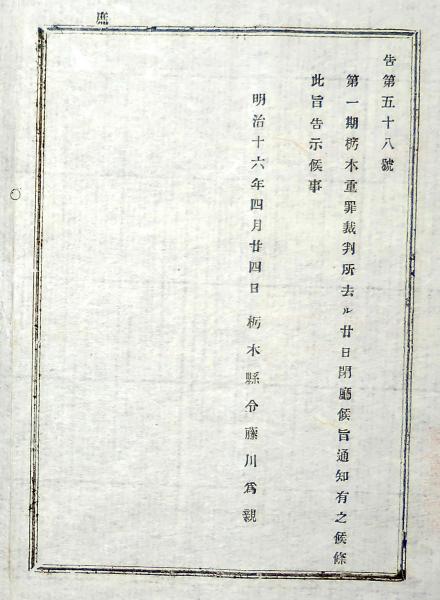 庶
告第五十八號
第一期栃木重罪裁判所去ル廿日閉廳候旨通知有之候條
此旨告示候事
明治十六年四月廿四日 栃木縣令藤川爲親